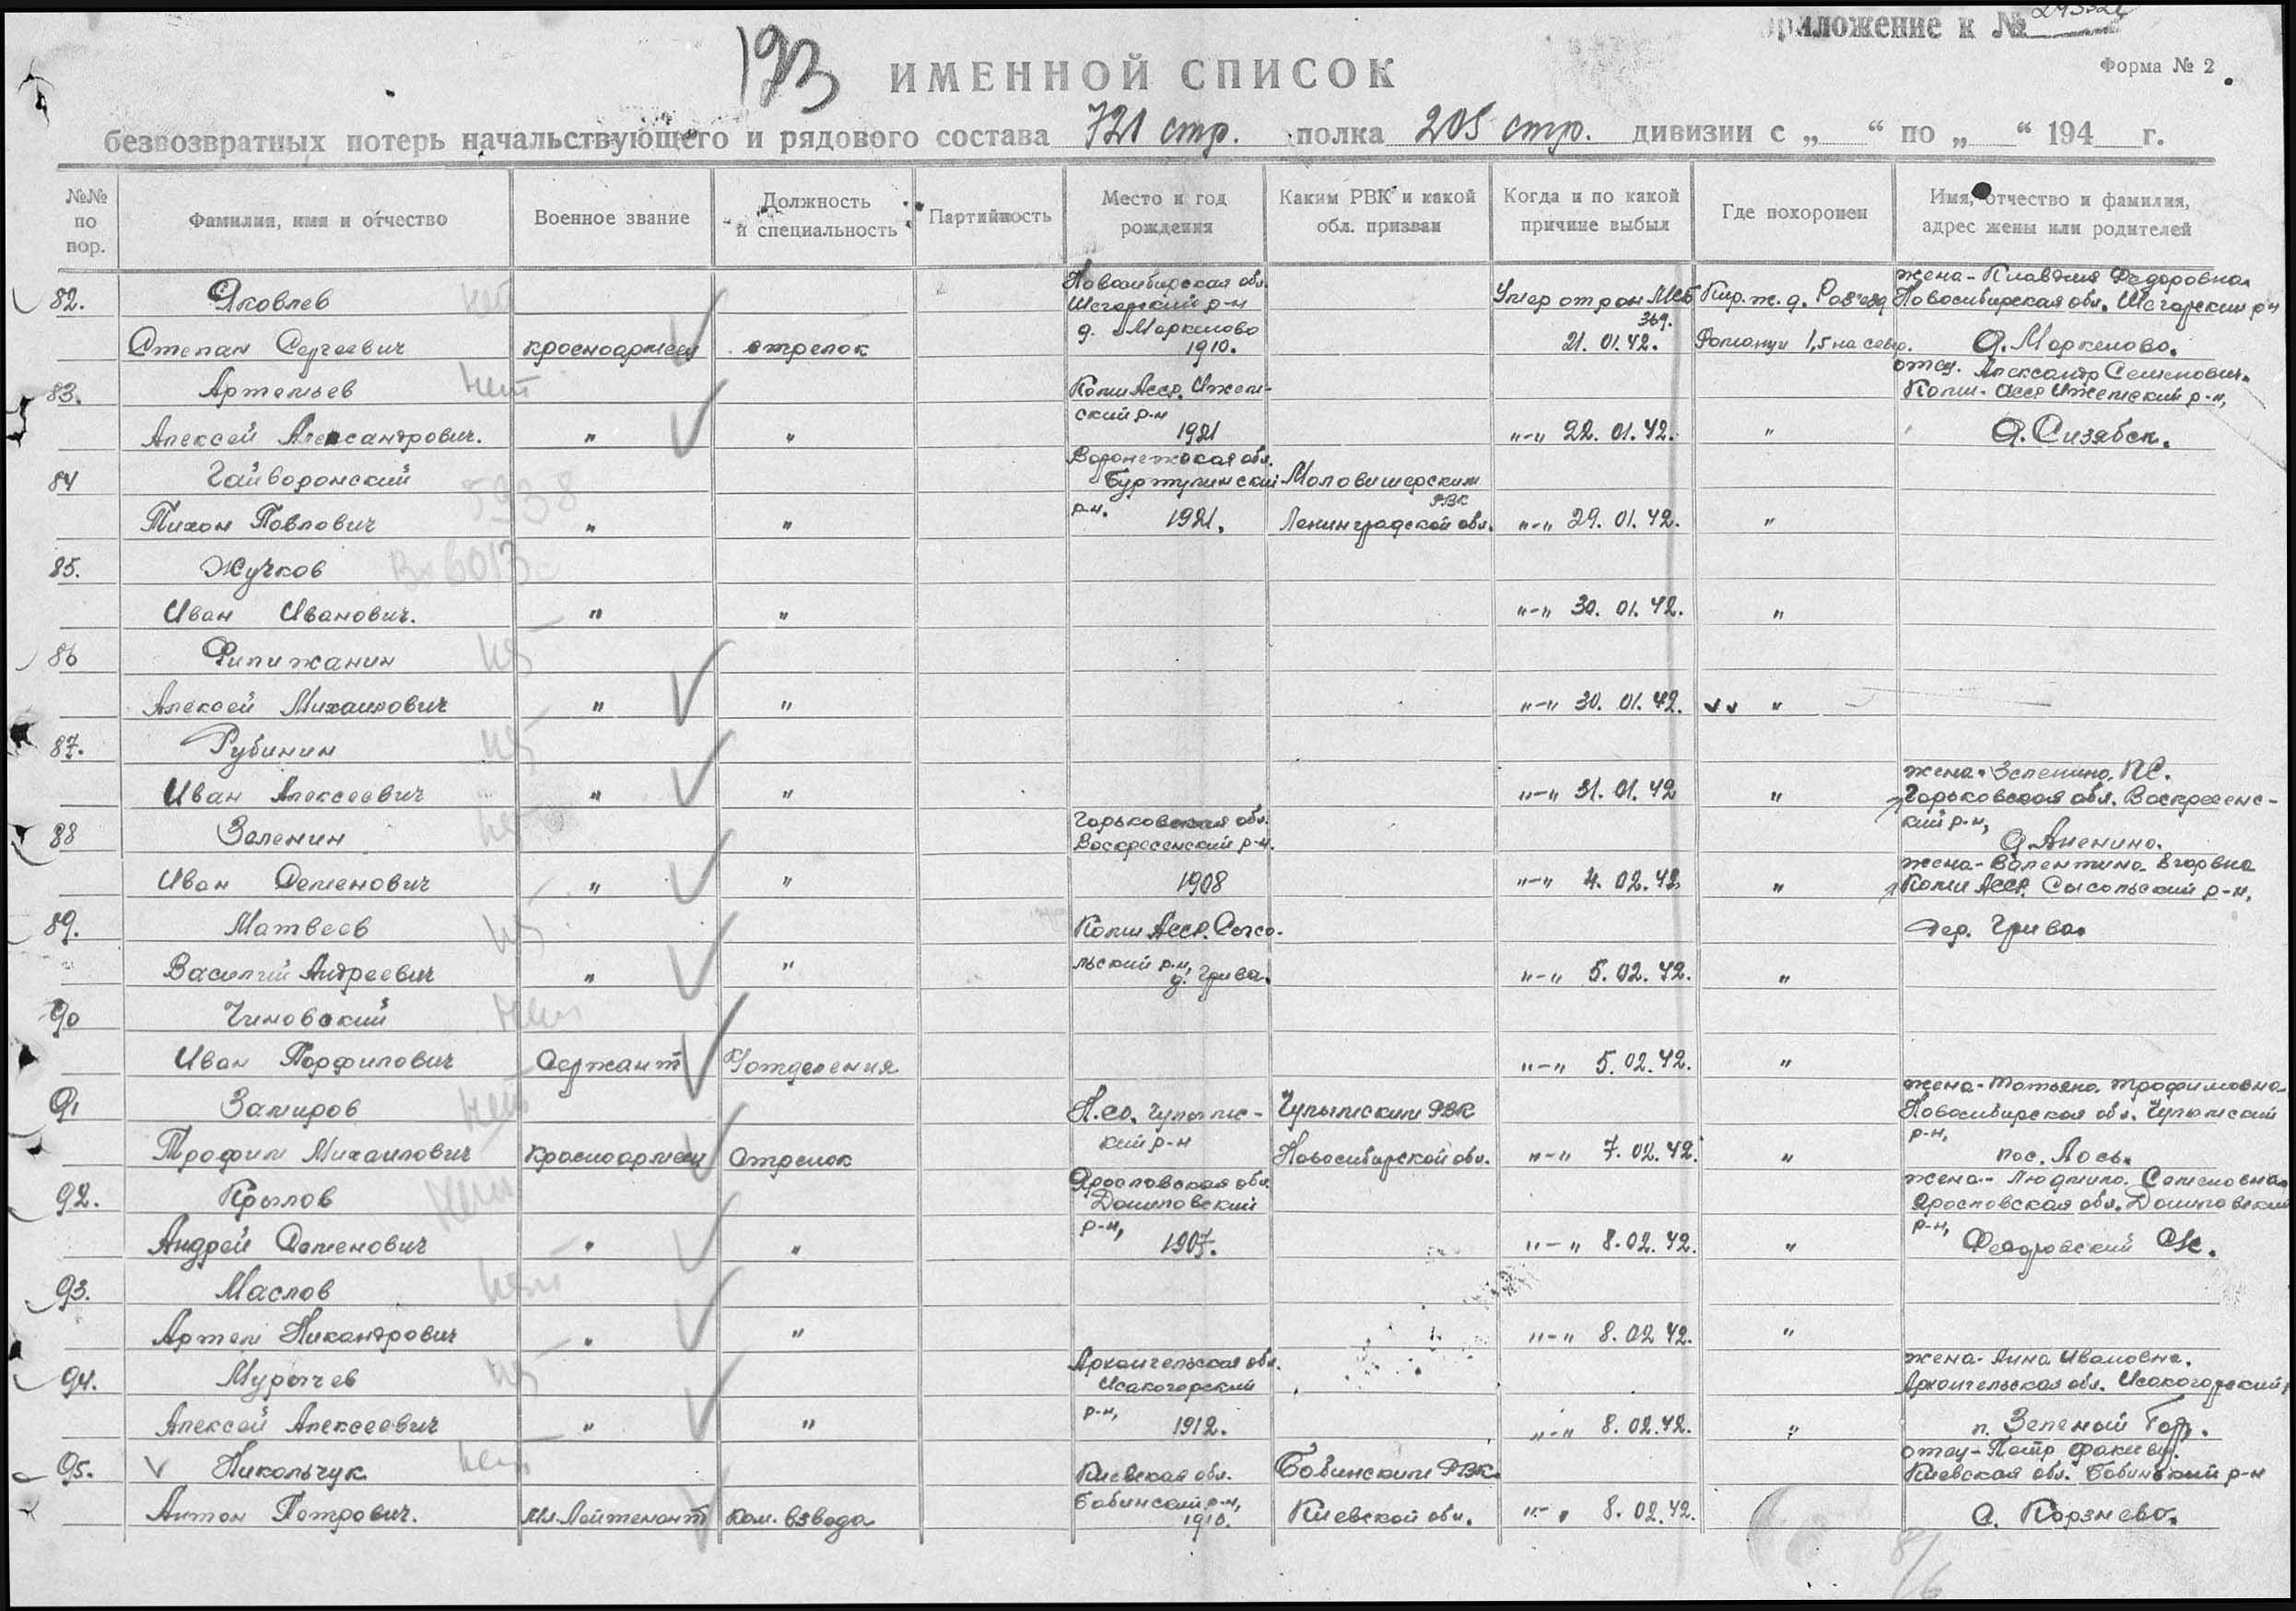 Приложение к №
193
ИМЕННОЙ СПИСОК
Форма № 2
безвозвратных потерь начальствующего и рядового состава 721 стр. полка 205 стр. дивизии с „ “ по „ “ 194 г.
№№ по пор. Фамилия, имя и отчество Военное звание Должность и специальность Партийность Место и год рождения Каким РВК и какой обл. призван Когда и по какой причине выбыл Где похоронен Имя, отчество и фамилия, адрес жены или родителей
82. Яковлев нет Новосибирская обл. Шегарский р-н Умер от ран МСБ Кир. ж. д. Разъезд жена - Клавдия Федоровна Новосибирская обл. Шегарский р-н
Степан Сергеевич красноармеец стрелок д. Маркелово 1910. 369. 21.01.42. 1,5 на север. д. Маркелово.
83. Артемьев нет Коми Асср. Ижем- отец. Александр Семенович. Коми - Асср Ижемский р-н,
Алексей Александрович. " " ский р-н 1921 "-" 22.01.42. " д. Сизябск.
84 Гайворонский 5938 Воронежская обл. Маловишерским РВК
Тихон Павлович " " р-н. 1921. Ленинградской обл. "-" 29.01.42. "
85. Жучков 6013
Иван Иванович. " " "-" 30.01.42. "
86 нет
Алексей Михайлович " " "-" 30.01.42. "
87. Рубинин нет
Иван Алексеевич " " "-" 31.01.42 "
88 Зеленин нет Горьковская обл. Воскресенский р-н. жена - Зеленина. П.С. Горьковская обл. Воскресенс- кий р-н, д. Аненино.
Иван Семенович " " 1908 "-" 4.02.42 "
89. Матвеев нет Коми Асср. Сысо- жена - Валентина Егоровна Коми Асср. Сысольский р-н, дер. Грива.
Василий Андреевич " " льский р-н, д. Грива. "-" 5.02.42. "
90 Чиновский нет
Иван Порфилович Сержант К/отделения "-" 5.02.42. "
91 Замиров нет Н.со. Чулымс- Чулымским РВК жена - Татьяна Трофимовна Новосибирская обл. Чулымский
Трофим Михаилович Красноармеец Стрелок кий р-н Новосибирской обл. "-" 7.02.42. " р-н, пос. Лось.
92. Крылов нет Ярославская обл. Даниловский жена - Людмила. Семеновна Ярославская обл. Даниловский
Андрей Семенович " " р-н, 1907. "-" 8.02.42. " р-н, Федоровский с/с.
93. Маслов нет
Артем Никандрович " " "-" 8.02.42. "
94. Мурычев нет Архангельская обл. Исакогорский жена - Анна Ивановна. Архангельская обл. Исакогорский
Алексей Алексеевич " " р-н, 1912. "-" 8.02.42. " п. Зеленый Бор.
95. Никольчук нет Киевская обл. Бабинским РВК отец - Петр Киевская обл. Бабинский р-н
Антон Петрович. Мл. Лейтенант Ком. взвода Бабинский р-н, 1910. Киевской обл. "-" 8.02.42. с. Корзнево.
8/6